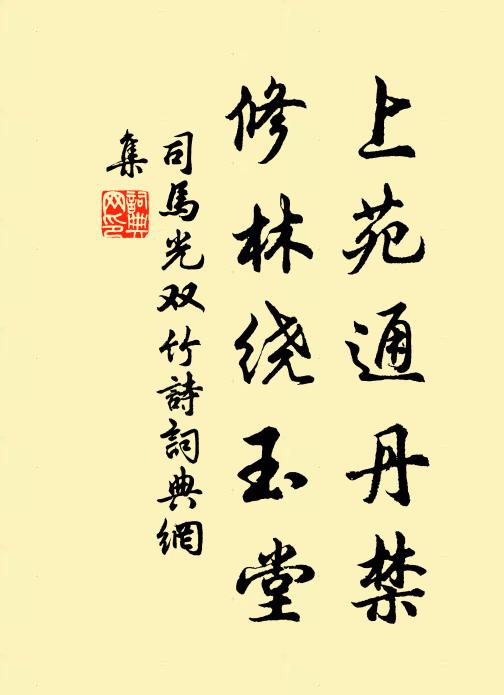 上苑通丹禁
修林绕玉堂
司馬光双竹詩詞典網
集
詞典
网印